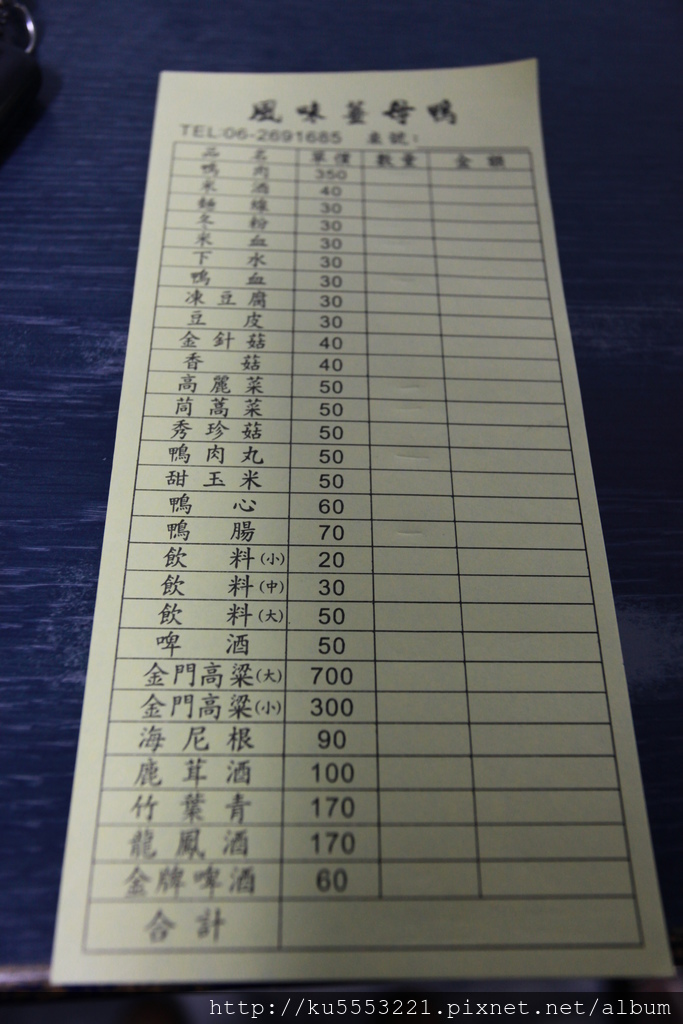 風味薑母鴨
TEL:06-2691685 桌號:
品名 單價 數量 金額
鴨肉 350
米酒 40
麵線 30
冬粉 30
米血 30
下水 30
鴨血 30
凍豆腐 30
豆皮 30
金針菇 40
香菇 40
高麗菜 50
茼蒿菜 50
秀珍菇 50
鴨肉丸 50
甜玉米 50
鴨心 60
鴨腸 70
飲料(小) 20
飲料(中) 30
飲料(大) 50
啤酒 50
金門高粱(大) 700
金門高粱(小) 300
海尼根 90
鹿茸酒 100
竹葉青 170
龍鳳酒 170
金牌啤酒 60
合計
http://ku5553221.pixnet.net/album